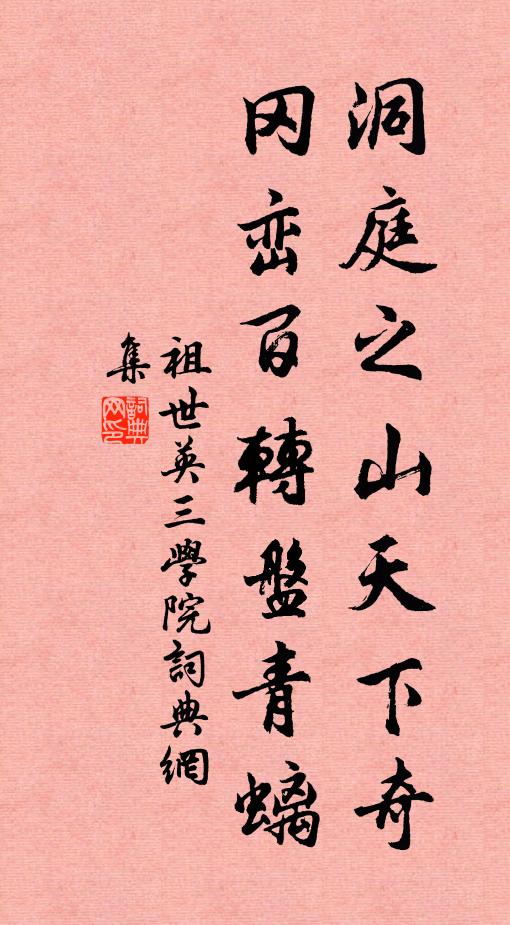 洞庭之山天下奇
冈峦百轉盤青螭
祖世英三學院詞典網
集
詞典網印